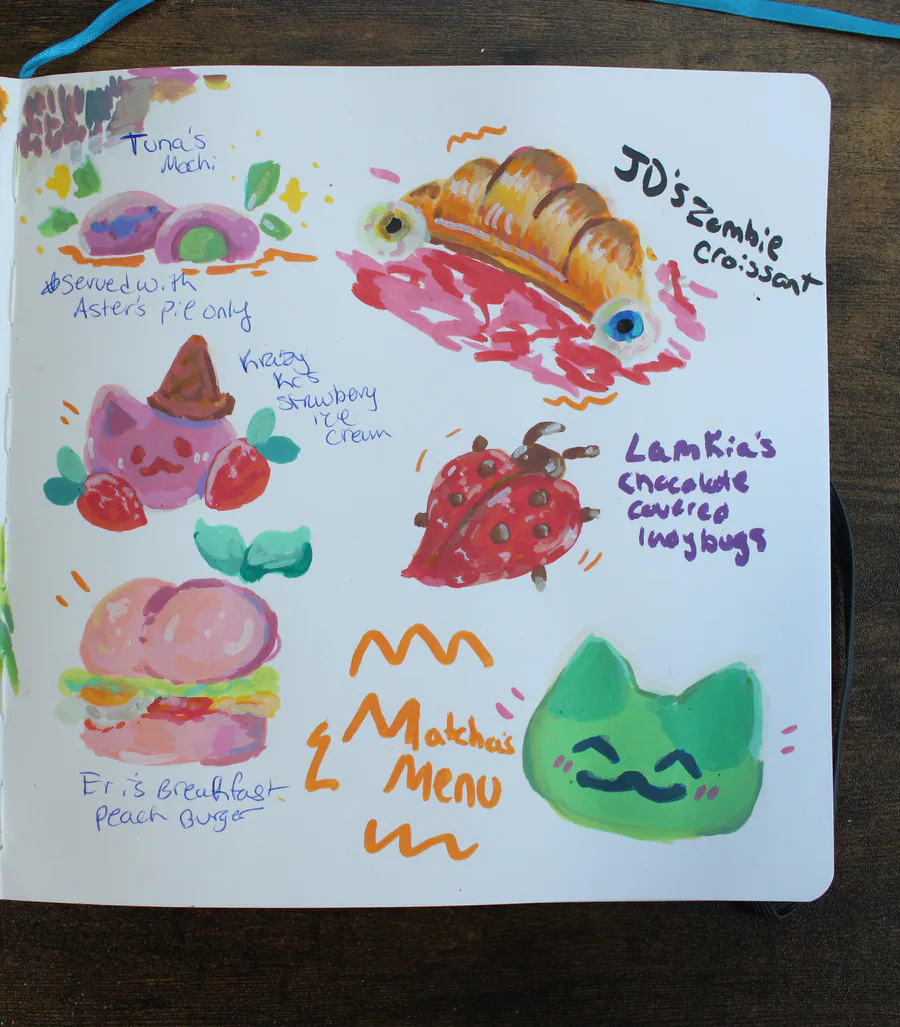 Tuna's
Mochi
served with
Aster's pie only
Krazy
Kc's
strawbery
ice
cream
Eri's Breakfast
Peach Burger
JD's Zombie
Croissant
Lamkia's
chocolate
covered
ladybugs
Matcha's
Menu